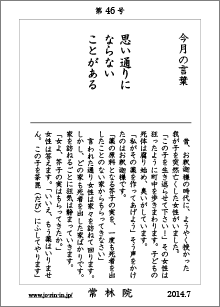 第46号
今月の言葉
思い通りに
ならない
ことがある
昔、お釈迦様の時代に、ようやく授かった
我が子を突然亡くした女性がいました。
「この子を生き返らせて下さい!」その女性は
狂ったように町中を歩きまわり、子どもの
死体は腐り始め、臭いがしています。
「私がその薬を作ってあげよう」そう声をかけ
たのはお釈迦様です。
「薬の原料になる芥子の実を、一度も死者を出
したことのない家からもらってきなさい」
言われた通り女性は家々を訪ねて回ります。
しかし、どの家も死者を出した家ばかりです。
家を訪ねるごとに狂気は静まっていきます。
「女よ、芥子の実はもらってきたか」
女性は答えます。「いいえ、もう薬はいりませ
ん。この子を荼毘（だび）にふしてやります」
www.jo-rin-in.jp
常林院
2014.7